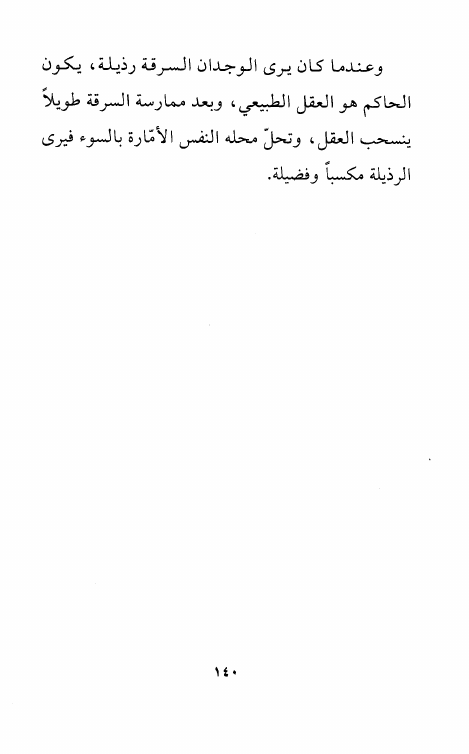 وعندما كان يرى الوجدان السرقة رذيلة، يكون
الحاكم هو العقل الطبيعي، وبعد ممارسة السرقة طويلاً
ينسحب العقل، وتحلّ محله النفس الأمّارة بالسوء فيرى
الرذيلة مكسباً وفضيلة.
١٤٠